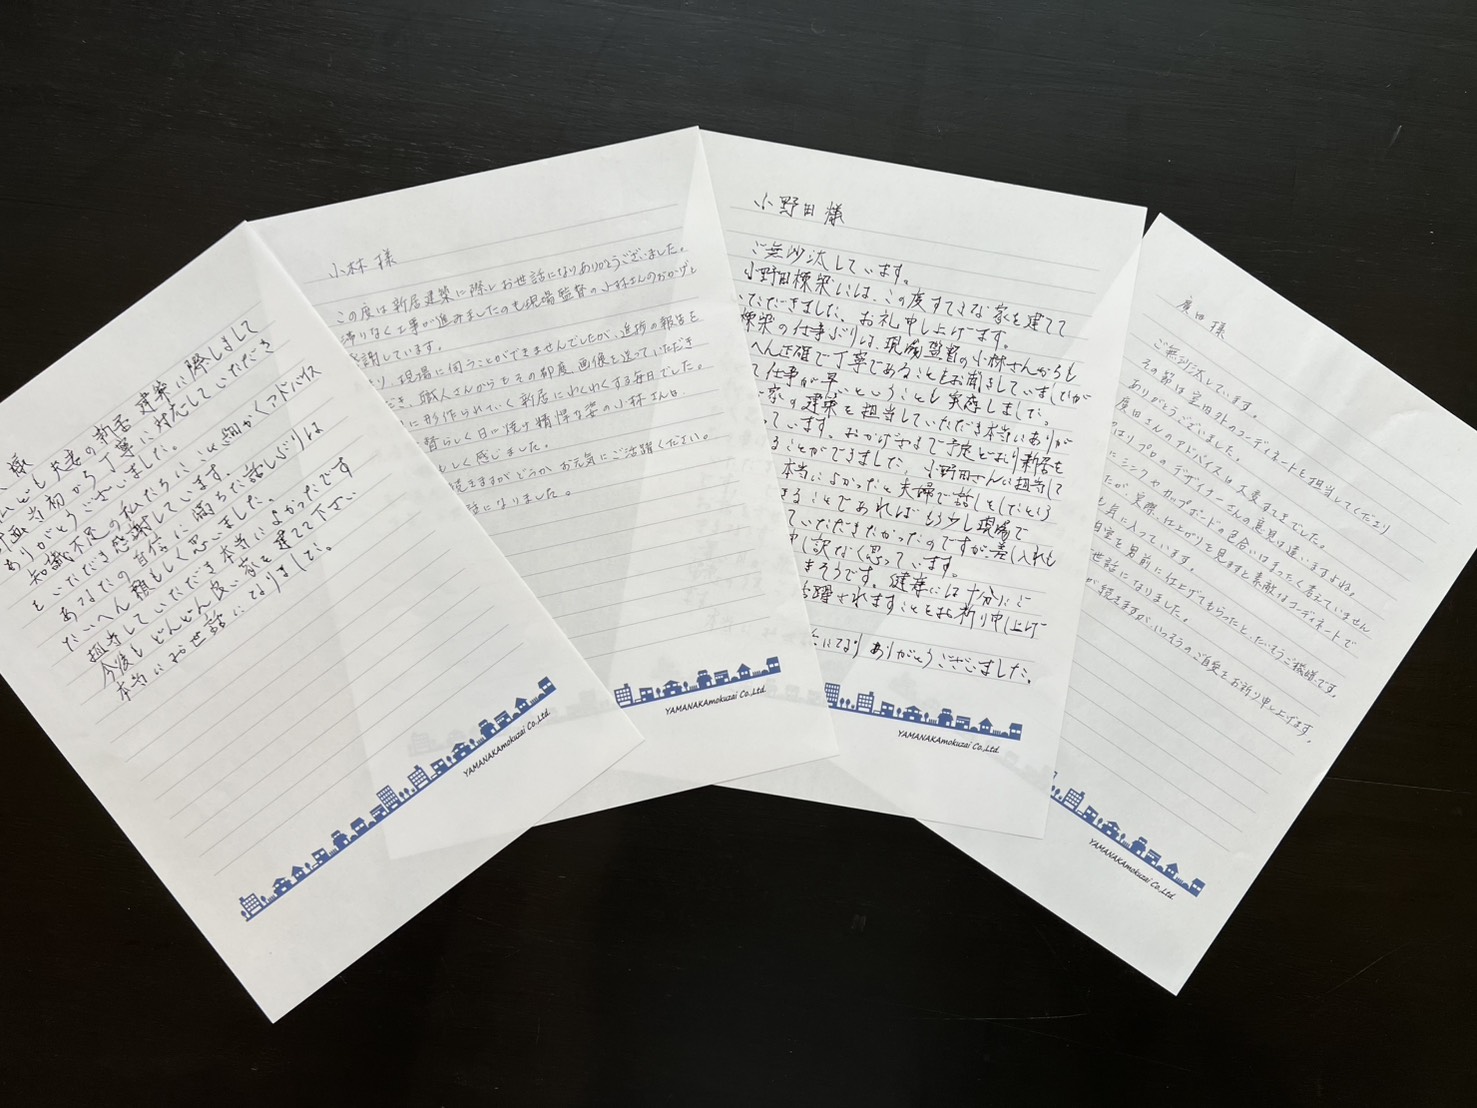 様
私ども夫妻の新居建築に際しまして
計画当初から丁寧に対応していただき
ありがとうございました。
知識不足の私たちに事細かくアドバイス
をいただき感謝しています。
あなたの自信に満ちた話しぶりは
たいへん頼もしく思いました。
担当していただき本当によかったです
今後もどんどん良い家を建てて下さい
本当にお世話になりました。
YAMANAKAmokuzai Co.,Ltd.
小林様
この度は新居建築に際しお世話になりありがとうございました。
滞りなく工事が進みましたのも現場監督の小林さんのおかげと
感謝しています。
現場に伺うことができませんでしたが、進捗の報告を
職人さんからもその都度、画像を送っていただき
に形作られていく新居にわくわくする毎日でした。
督らしく日に焼け精悍な姿の小林さんは
もしく感じました。
続きますがどうかお元気にご活躍ください。
話になりました。
YAMANAKAmokuzai Co.,Ltd.
小野田様
ご無沙汰しています。
小野田棟梁には、この度すてきな家を建てて
いただきました、お礼申し上げます。
棟梁の仕事ぶりは、現場監督の小林さんからも
へん正確で丁寧であることもお聞きしていましたが
て仕事が早いということも実感しました。
家の建築を担当していただき本当にありが
っています。おかげさまで予定どおり新居を
ることができました。小野田さんに担当して
本当によかったと夫婦で話しをしたという
きることであればもう少し現場で
ていただきたかったのですが差し入れも
申し訳なく思っています。
きそうです。健康には十分にご
活躍されますことをお祈り申し上げ
になり ありがとうございました。
YAMANAKAmokuzai Co.,Ltd.
廣田様
ご無沙汰しています。
その節は室内外のコーディネートを担当してくださり
ありがとうございました。
廣田さんのアドバイスは大変すてきでした。
やはりプロのデザイナーさんの意見は違いますよね。
にシンクやカップボードの色合いはまったく考えていません
たが、実際、仕上がりを見ますと素敵なコーディネートで
も気に入っています。
自室を男前に仕上げてもらったと、たいそうご機嫌です。
世話になりました。
が続きますが、いっそうのご自愛をお祈り申し上げます。
YAMANAKAmokuzai Co.,Ltd.